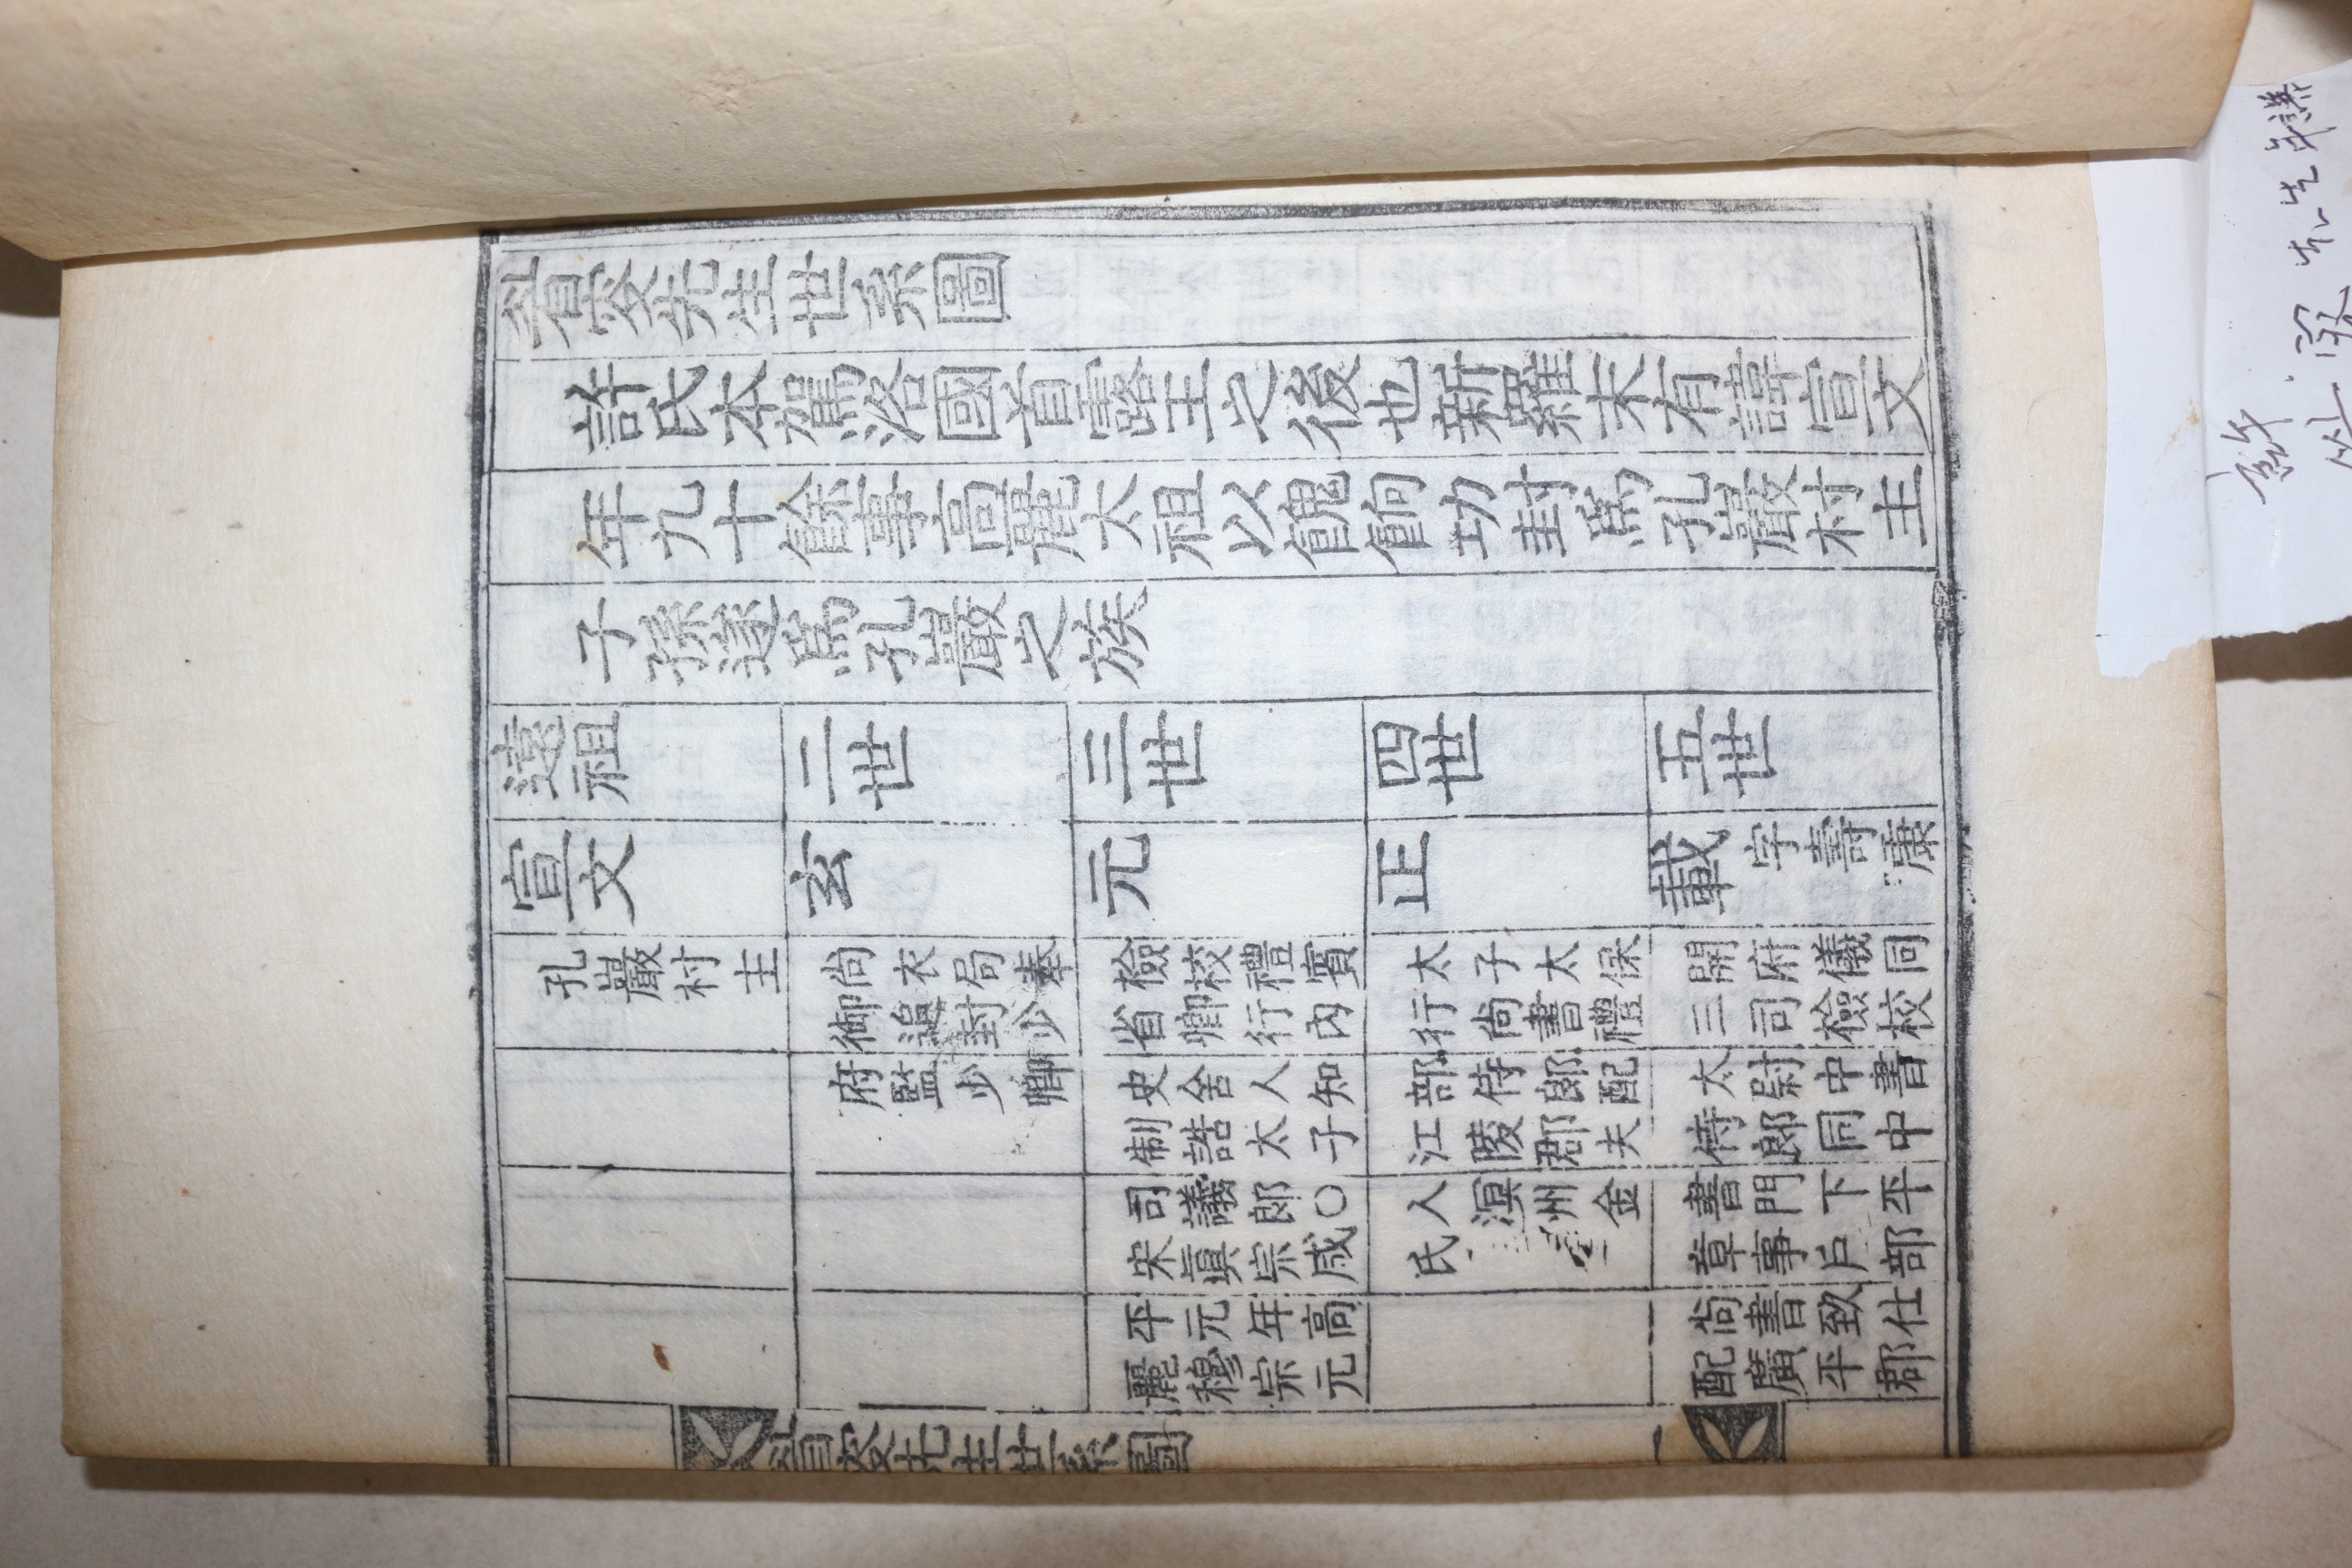 眉叟先生世系圖
許氏本駕洛國首露王之後也新羅末有諱宣文
年九十餘事高麗太祖以餽餉功封爲孔巖村主
子孫遂爲孔巖之族
遠祖
宣文
孔巖村主
二世
玄
尚衣局奉
御追封少
府監少卿
三世
元
檢校禮賓
省卿行內
史舍人知
制誥太子
司議郎〇
宋眞宗咸
平元年高
麗穆宗元
四世
正
太子太保
行尚書禮
部侍郎配
江陵郡夫
人溟州金
氏
五世
載 字壽康
開府儀同
三司檢校
太尉中書
侍郎同中
書門下平
章事戶部
尚書致仕
配廣平郡
眉叟先生世系圖 一
叟先生年譜